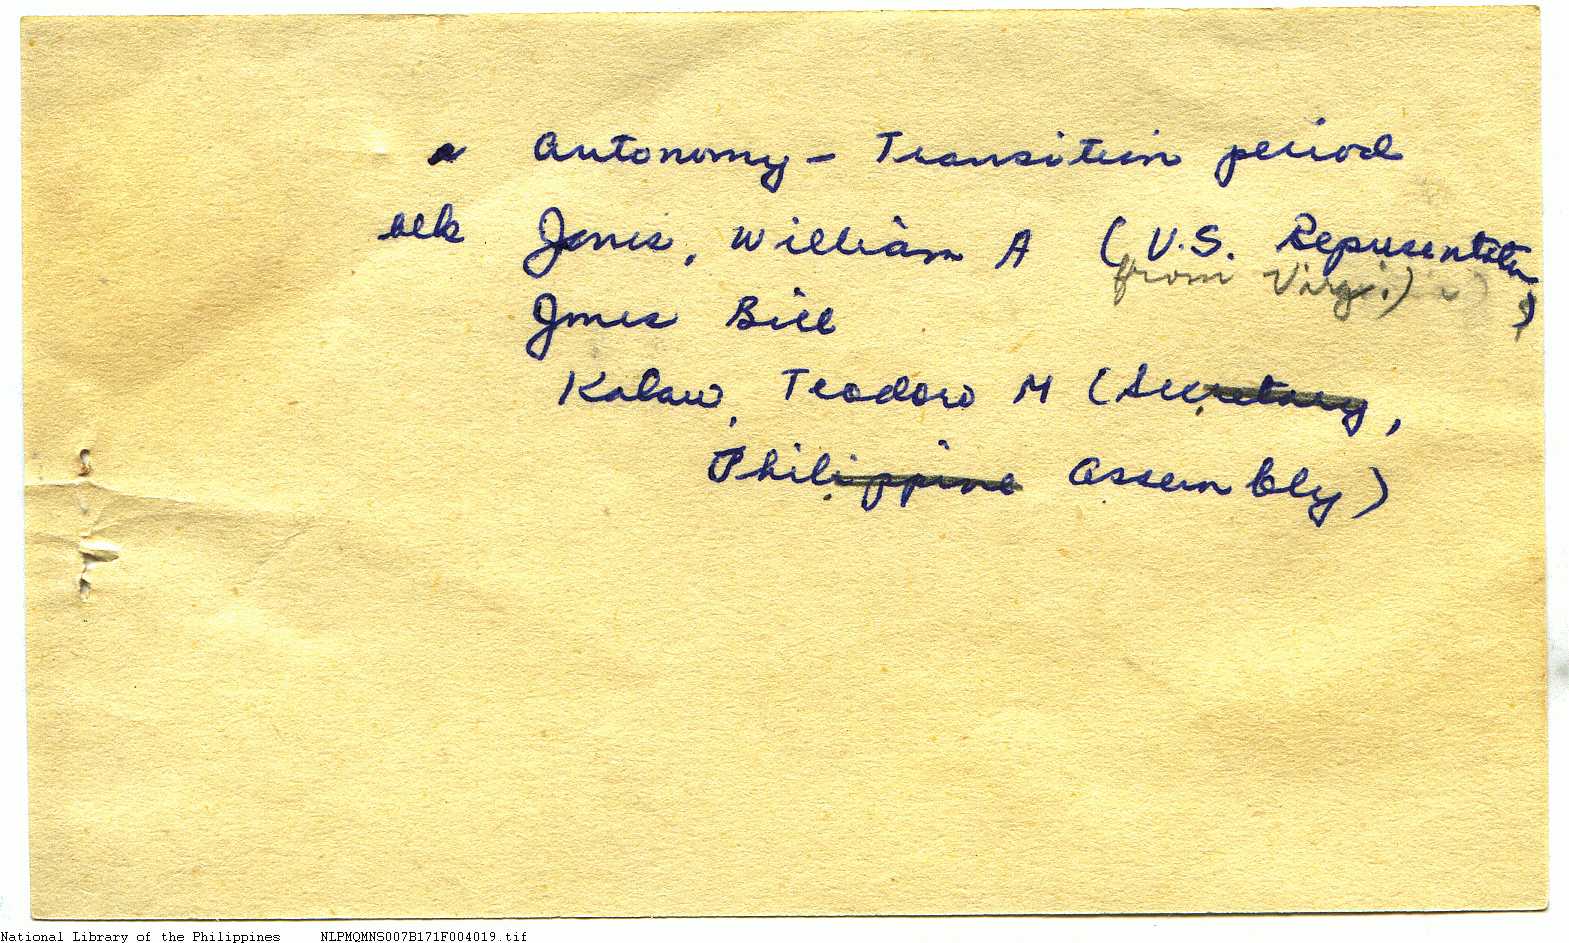 a Autonomy - Transition period
Jones, William A (U.S. Representative
from Virgi.)
Jones Bill
Kalaw, Teodoro M (Secretary,
Philippine Assembly)
National Library of the Philippines NLPMQMNS007B171F004019.tif